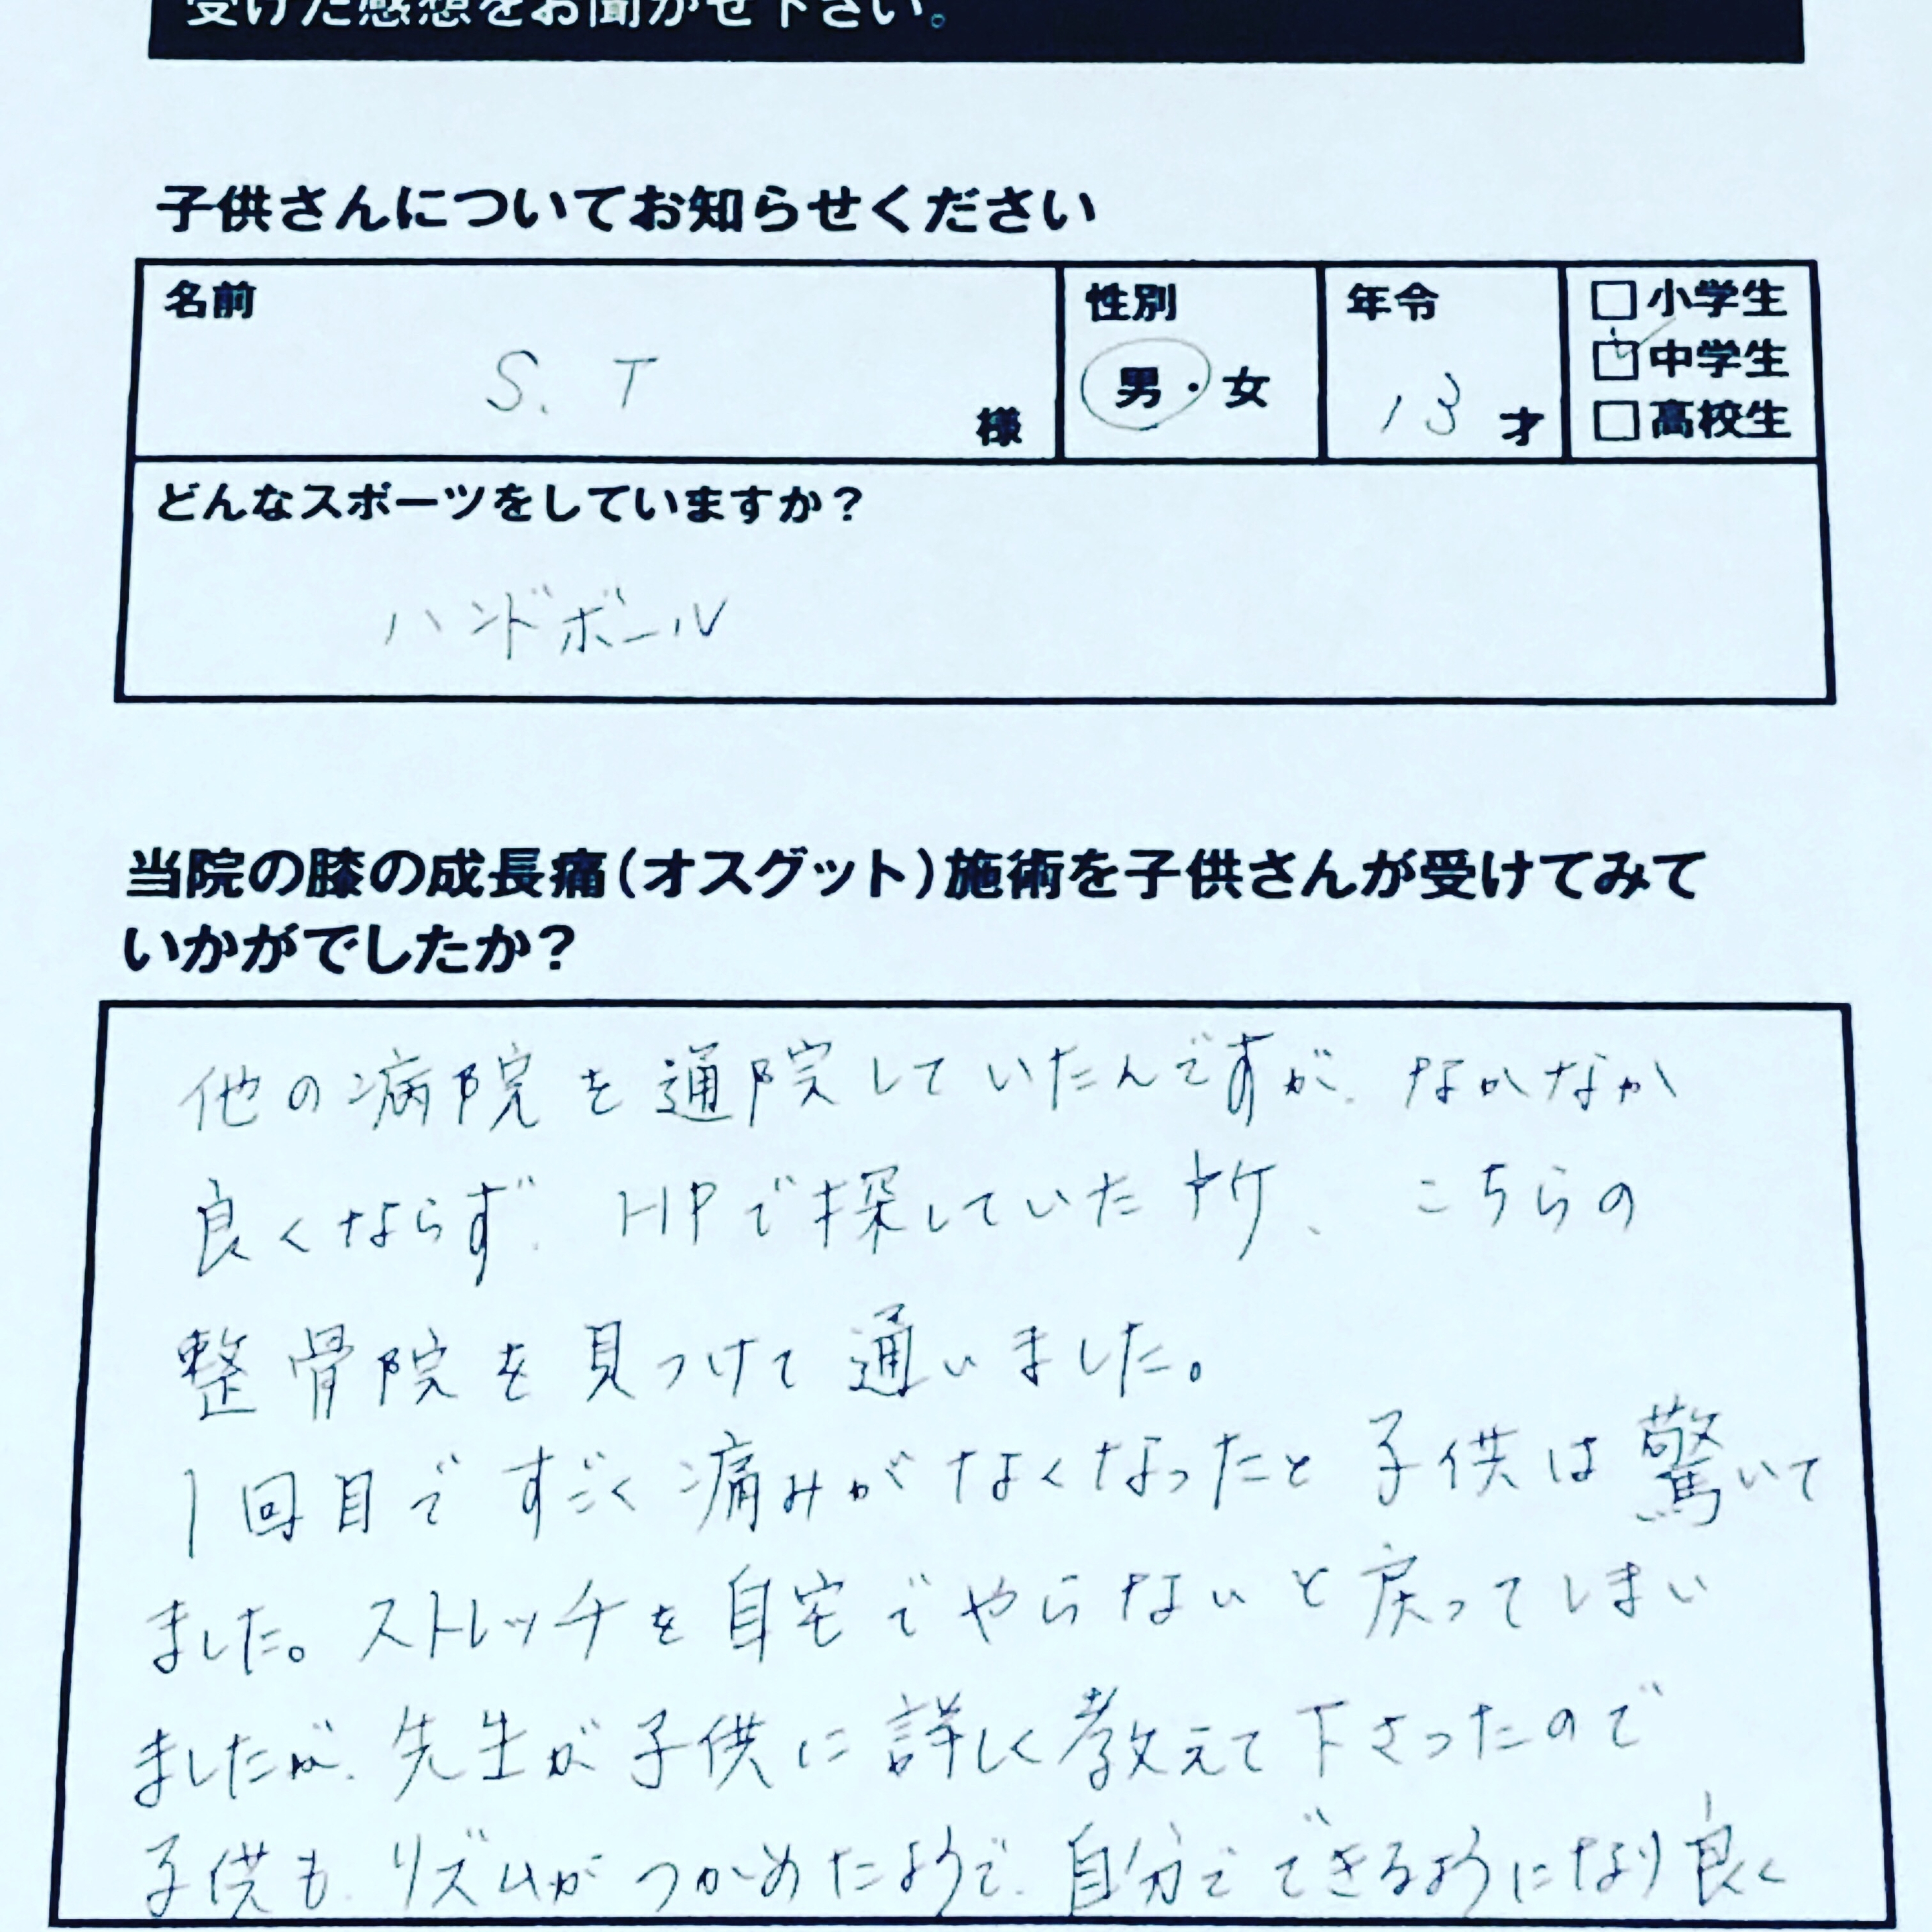 受けた感想をお聞かせ下さい。
子供さんについてお知らせください
名前 性別 年令 □小学生
S.T 様 男・女 13才 ☑中学生
□高校生
どんなスポーツをしていますか？
ハンドボール
当院の膝の成長痛（オスグット）施術を子供さんが受けてみて
いかがでしたか？
他の病院を通院していたんですが、なかなか
良くならず、HPで探していた所、こちらの
整骨院を見つけて通いました。
1回目ですごく痛みがなくなったと子供は驚いて
ました。ストレッチを自宅でやらないと戻ってしまい
ましたが、先生が子供に詳しく教えて下さったので
子供も、リズムがつかめたようで、自分でできるようになり良く